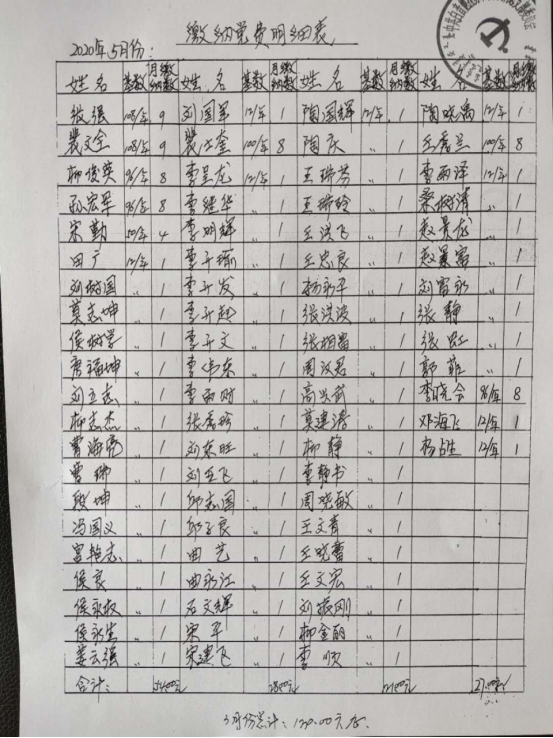 缴纳党费明细表
2020年5月份:
姓名 基数 月缴纳数 姓名 基数 月缴纳数 姓名 基数 月缴纳数 姓名 基数 月缴纳数
张强 108/年 9 刘国军 12/年 1 陶国辉 12/年 1 陶晓禹 12/年 1
裴文全 108/年 9 100/年 8 陶庆 〃 1 王秀兰 100/年 8
柳俊英 96/年 8 李呈龙 12/年 1 王瑞芬 〃 1 李雨泽 12/年 1
孙宏军 96/年 8 李继华 〃 1 王瑞玲 〃 1 桑树清 〃 1
宋勤 50/年 4 李明辉 〃 1 王洪飞 〃 1 赵景龙 〃 1
田广 12/年 1 李开瑜 〃 1 王忠良 〃 1 赵景富 〃 1
刘树国 〃 1 李开发 〃 1 杨永平 〃 1 刘富永 〃 1
莫志坤 〃 1 李开赴 〃 1 张洪波 〃 1 张静 〃 1
侯树学 〃 1 李开文 〃 1 张相富 〃 1 张虹 〃 1
唐福坤 〃 1 李伟东 〃 1 周汉忠 〃 1 郭菲 〃 1
刘立志 〃 1 李雨财 〃 1 高兴武 〃 1 李晓会 96/年 8
柳志杰 〃 1 张秀珍 〃 1 莫建涛 〃 1 邓海飞 12/年 1
曹海亮 〃 1 刘东旺 〃 1 柳静 〃 1 杨占生 12/年 1
曹瑞 〃 1 刘玉飞 〃 1 李静书 〃 1
段坤 〃 1 邱志国 〃 1 周晓敏 〃 1
冯国义 〃 1 邱玉良 〃 1 王文青 〃 1
宫艳志 〃 1 曲艺 〃 1 王晓蕾 〃 1
侯良 〃 1 曲永江 〃 1 王文宏 〃 1
侯永权 〃 1 石文辉 〃 1 刘振刚 〃 1
侯永生 〃 1 宋平 〃 1 柳金丽 〃 1
姜云强 〃 1 宋建飞 〃 1 李顺 〃 1
合计: 54.00元 28.00元 21.00元 27.00元